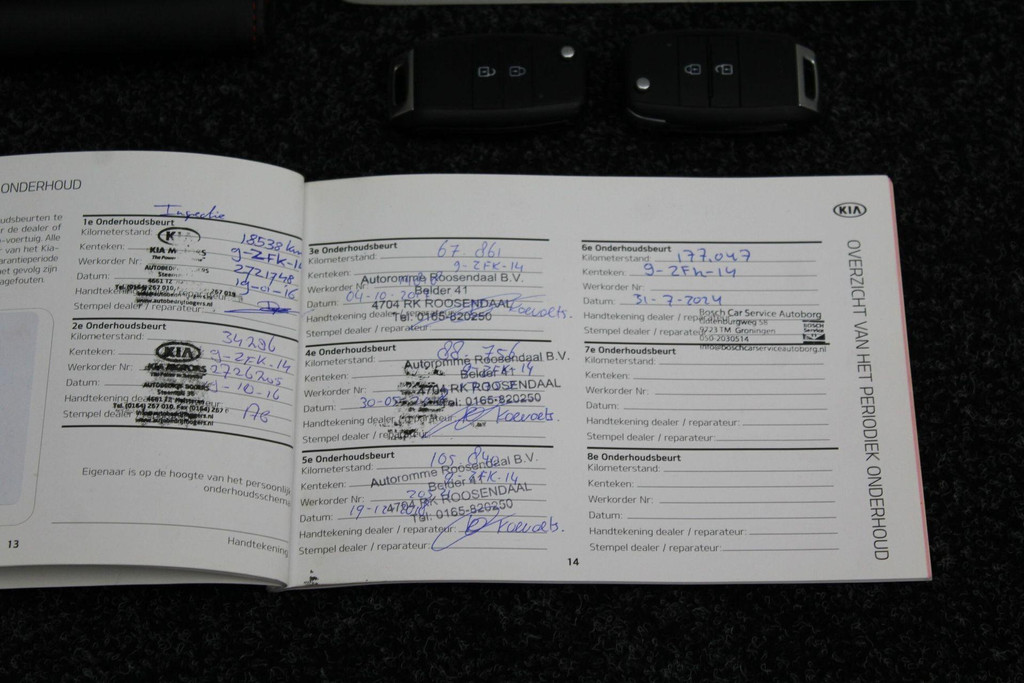 ONDERHOUD
udsbeurten te
r de dealer of
-voertuig. Alle
van het Kia-
arantieperiode
et gevolg zijn
agefouten.
Inspectie
1e Onderhoudsbeurt
Kilometerstand: 18538 km
KIA
Kenteken: 9-ZFK-14
Werkorder Nr: 2721748
Datum: 19-01-16
Handtekening
Tel. (0164) 267 010
Stempel dealer / reparateur:
2e Onderhoudsbeurt
Kilometerstand: 34296
KIA
Kenteken: 9-ZFK-14
KIA MOTORS
Werkorder Nr: 2726245
Datum: -10-16
Handtekening dealer
Tel. (0164) 267 010, Fax (0164) 267
Stempel dealer
Eigenaar is op de hoogte van het persoonlijk
onderhoudsschema
Handtekening
13
3e Onderhoudsbeurt
Kilometerstand: 67.861
Kenteken: 9-ZFK-14
Autoromme Roosendaal B.V.
Werkorder Nr:
Belder 41
Datum: 04-10-
4704 RK ROOSENDAAL
Tel: 0165-820250
Handtekening dealer / reparateur: Koevoets.
Stempel dealer / reparateur:
4e Onderhoudsbeurt
Kilometerstand: 88.756
Autoromme Roosendaal B.V.
Kenteken: 9-ZFK-14
Belder 41
Werkorder Nr:
4704 RK ROOSENDAAL
Datum: 30-05-
Tel: 0165-820250
Handtekening dealer / reparateur: Koevoets.
Stempel dealer / reparateur:
5e Onderhoudsbeurt
Kilometerstand: 105.840
Autoromme Roosendaal B.V.
Kenteken: 9-ZFK-14
Belder 41
Werkorder Nr:
4704 RK ROOSENDAAL
Datum: 19-12-2018
Tel: 0165-820250
Handtekening dealer / reparateur: Koevoets.
Stempel dealer / reparateur:
14
KIA
6e Onderhoudsbeurt
Kilometerstand: 177.047
Kenteken: 9-ZFK-14
Werkorder Nr:
Datum: 31-7-2024
Bosch Car Service Autoborg
Handtekening dealer / reparateur:
Gutenburgweg 58
9723 TM Groningen
BOSCH
Service
Stempel dealer / reparateur:
050-2030514
info@boschcarserviceautoborg.nl
7e Onderhoudsbeurt
Kilometerstand:
Kenteken:
Werkorder Nr:
Datum:
Handtekening dealer / reparateur:
Stempel dealer / reparateur:
8e Onderhoudsbeurt
Kilometerstand:
Kenteken:
Werkorder Nr:
Datum:
Handtekening dealer / reparateur:
Stempel dealer / reparateur:
OVERZICHT VAN HET PERIODIEK ONDERHOUD